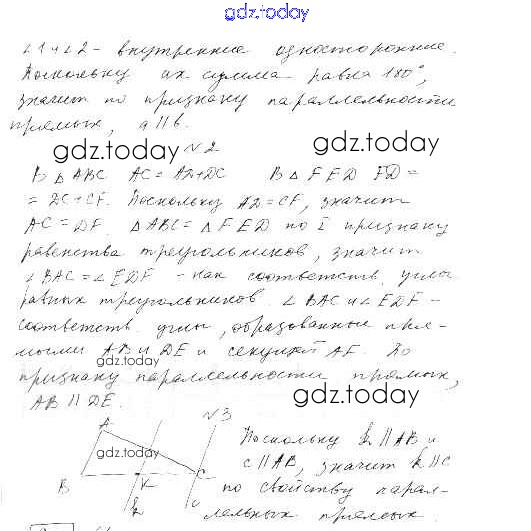 gdz.today
∠1 и ∠2 - внутренние односторонние.
Поскольку их сумма равна 180°,
значит по признаку параллельности
прямых, a || b.
gdz.today
№2
gdz.today
В △ABC AC = AD + DC В △FED FD =
= DC + CF. Поскольку AD = CF, значит
AC = DF. △ABC = △FED по I признаку
равенства треугольников, значит
∠BAC = ∠EDF - как соответств. углы
равных треугольников. ∠BAC и ∠EDF -
соответств. углы, образованные пря-
мыми AB и DE и секущей AF. По
gdz.today
признаку параллельности прямых,
AB || DE.
gdz.today
№3
A
gdz.today
B
K
C
k
c
Поскольку k || AB и
c || AB, значит k || c
по свойству парал-
лельных прямых.